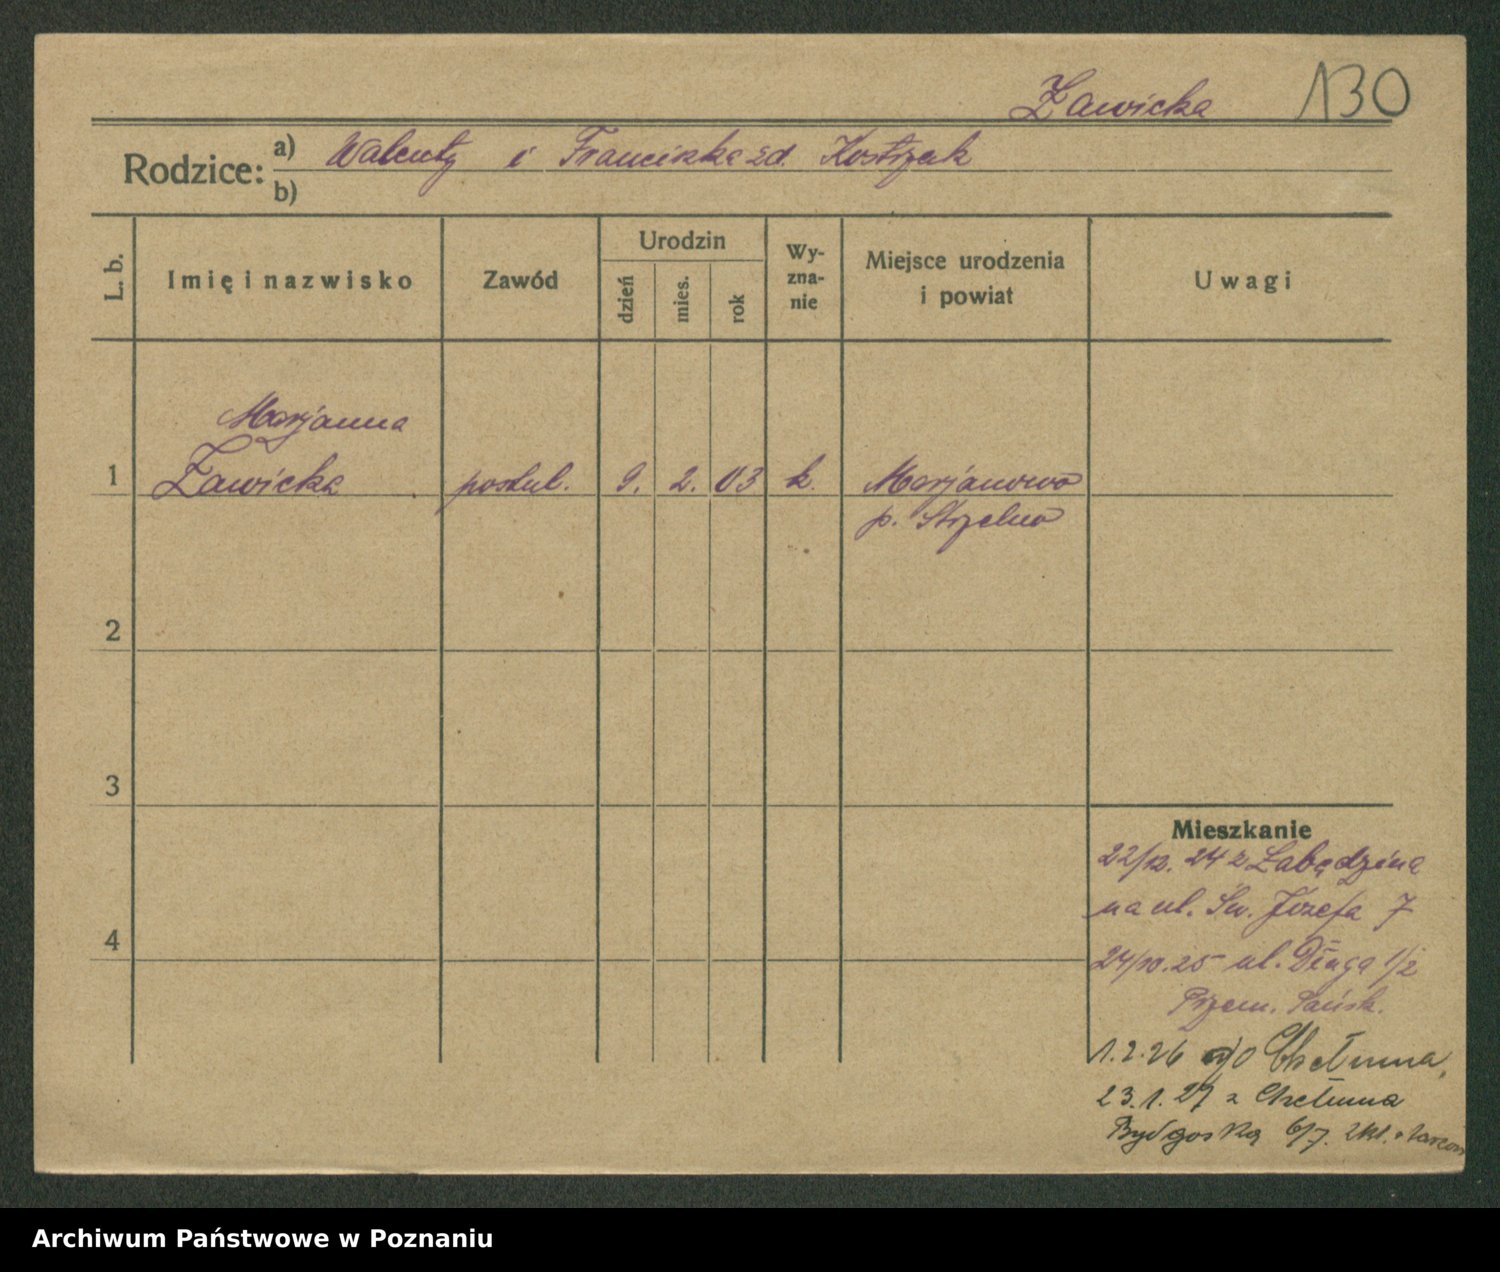 Zawicka 130
Rodzice: a) Walenty i Franciszka zd. Kostrzak
b)
L. b. Imię i nazwisko Zawód Urodzin dzień mies. rok Wy-zna-nie Miejsce urodzenia i powiat Uwagi
Marjanna
1 Zawicka postul. 9. 2. 03 k. Marjanowo
p. Strzelno
2
3
Mieszkanie
22/12. 24 z Łabądzina
na ul. Św. Józefa 7
4
24/10.25 ul. Długa 1/2
Przem. Pańsk.
1.2.26 do Chełmna,
23.1.27 z Chełmna
Bydgoska 6/7.
Archiwum Państwowe w Poznaniu